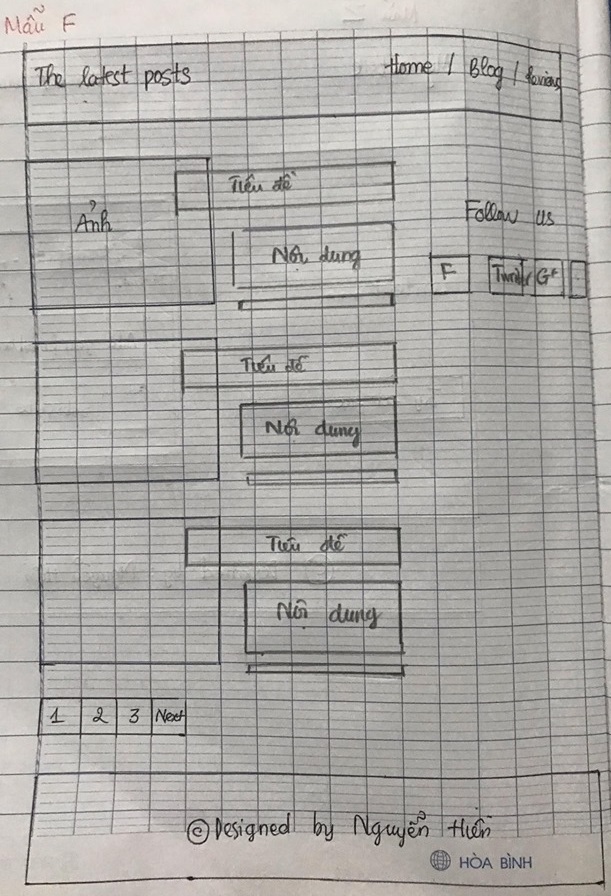 Mẫu F
The latest posts Home / Blog / Reviews
Tiêu đề
Ảnh
Follow us
Nội dung
F Twitter G+
Tiêu đề
Nội dung
Tiêu đề
Nội dung
1 2 3 Next
©Designed by Nguyễn Hiền
HÒA BÌNH